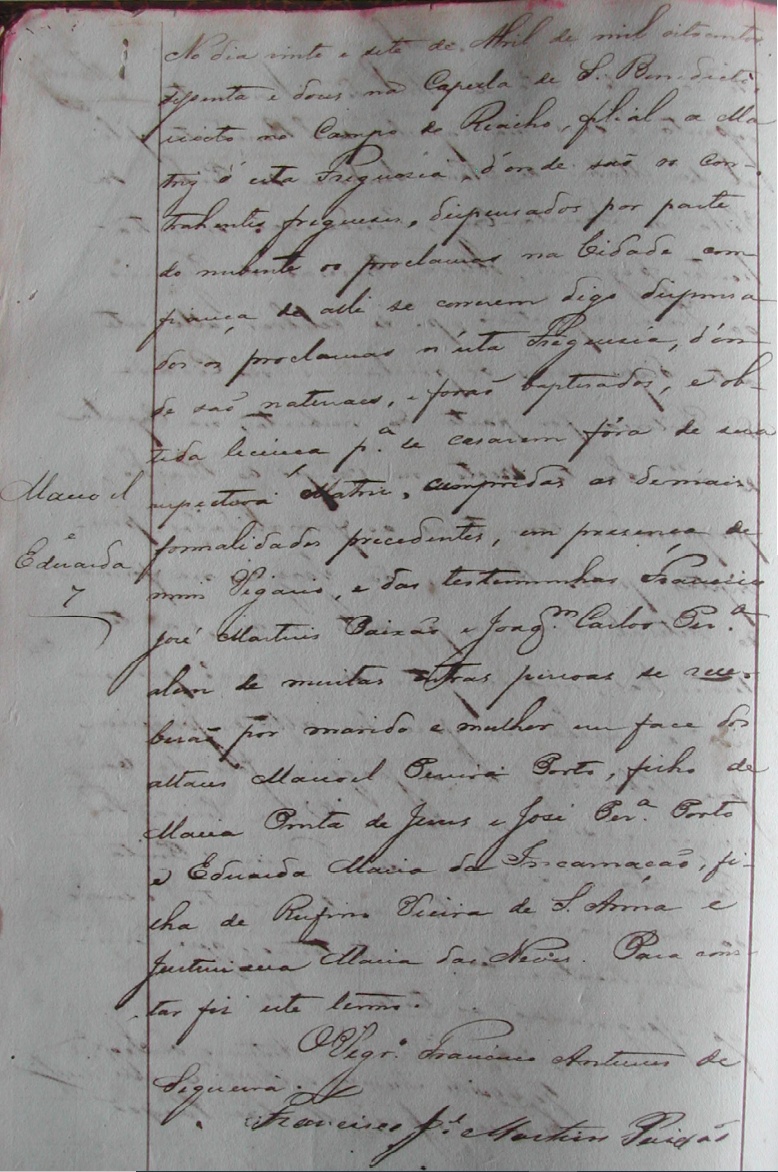 No dia vinte e sete de Abril de mil oitocentos
sessenta e dous na Capella de S. Benedicto,
no Campo do Riacho, filial a Ma
triz d'esta Freguesia, d'onde são os con-
trahentes freguezes, dispensados por parte
do nubente os proclamas na Cidade com
fiança de alli se correrem digo dispensa
dos os proclamas n'esta Freguesia, d'on-
de são naturaes, e forão baptisados, e ob-
tida licença p.ª se casarem fóra de sua
respectiva Matriz, cumpridas as demais
Manoel
e
Eduarda
7
formalidades precedentes, em presença de
mim Vigario, e das testemunhas Francisco
José Martins Paixão e Joaq.m Carlos Per.ª
alem de muitas outras pessoas se rece-
berão por marido e mulher em face dos
altares Manoel Pereira Porto, filho de
Maria Pinta de Jesus e José Per.ª Porto
e Eduarda Maria da Incarnação, fi-
lha de Rufino Vieira de S. Anna e
Maria das Neves. Para cons-
tar fiz este termo.
O Vigr.º Francisco Antunes de
Siqueira.
Francisco J.é Martins Paixão